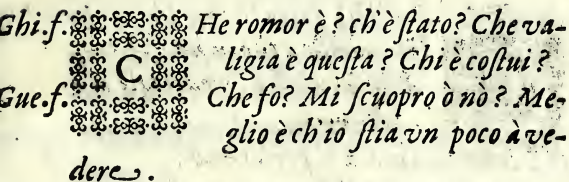 Ghi.s. CHe romor è? ch'è ſtato? Che va-
ligia è queſta? Chi è coſtui?
Gue.s. Che fo? Mi ſcuopro ò nò? Me-
glio è ch'io ſtia vn poco à ve-
dere.